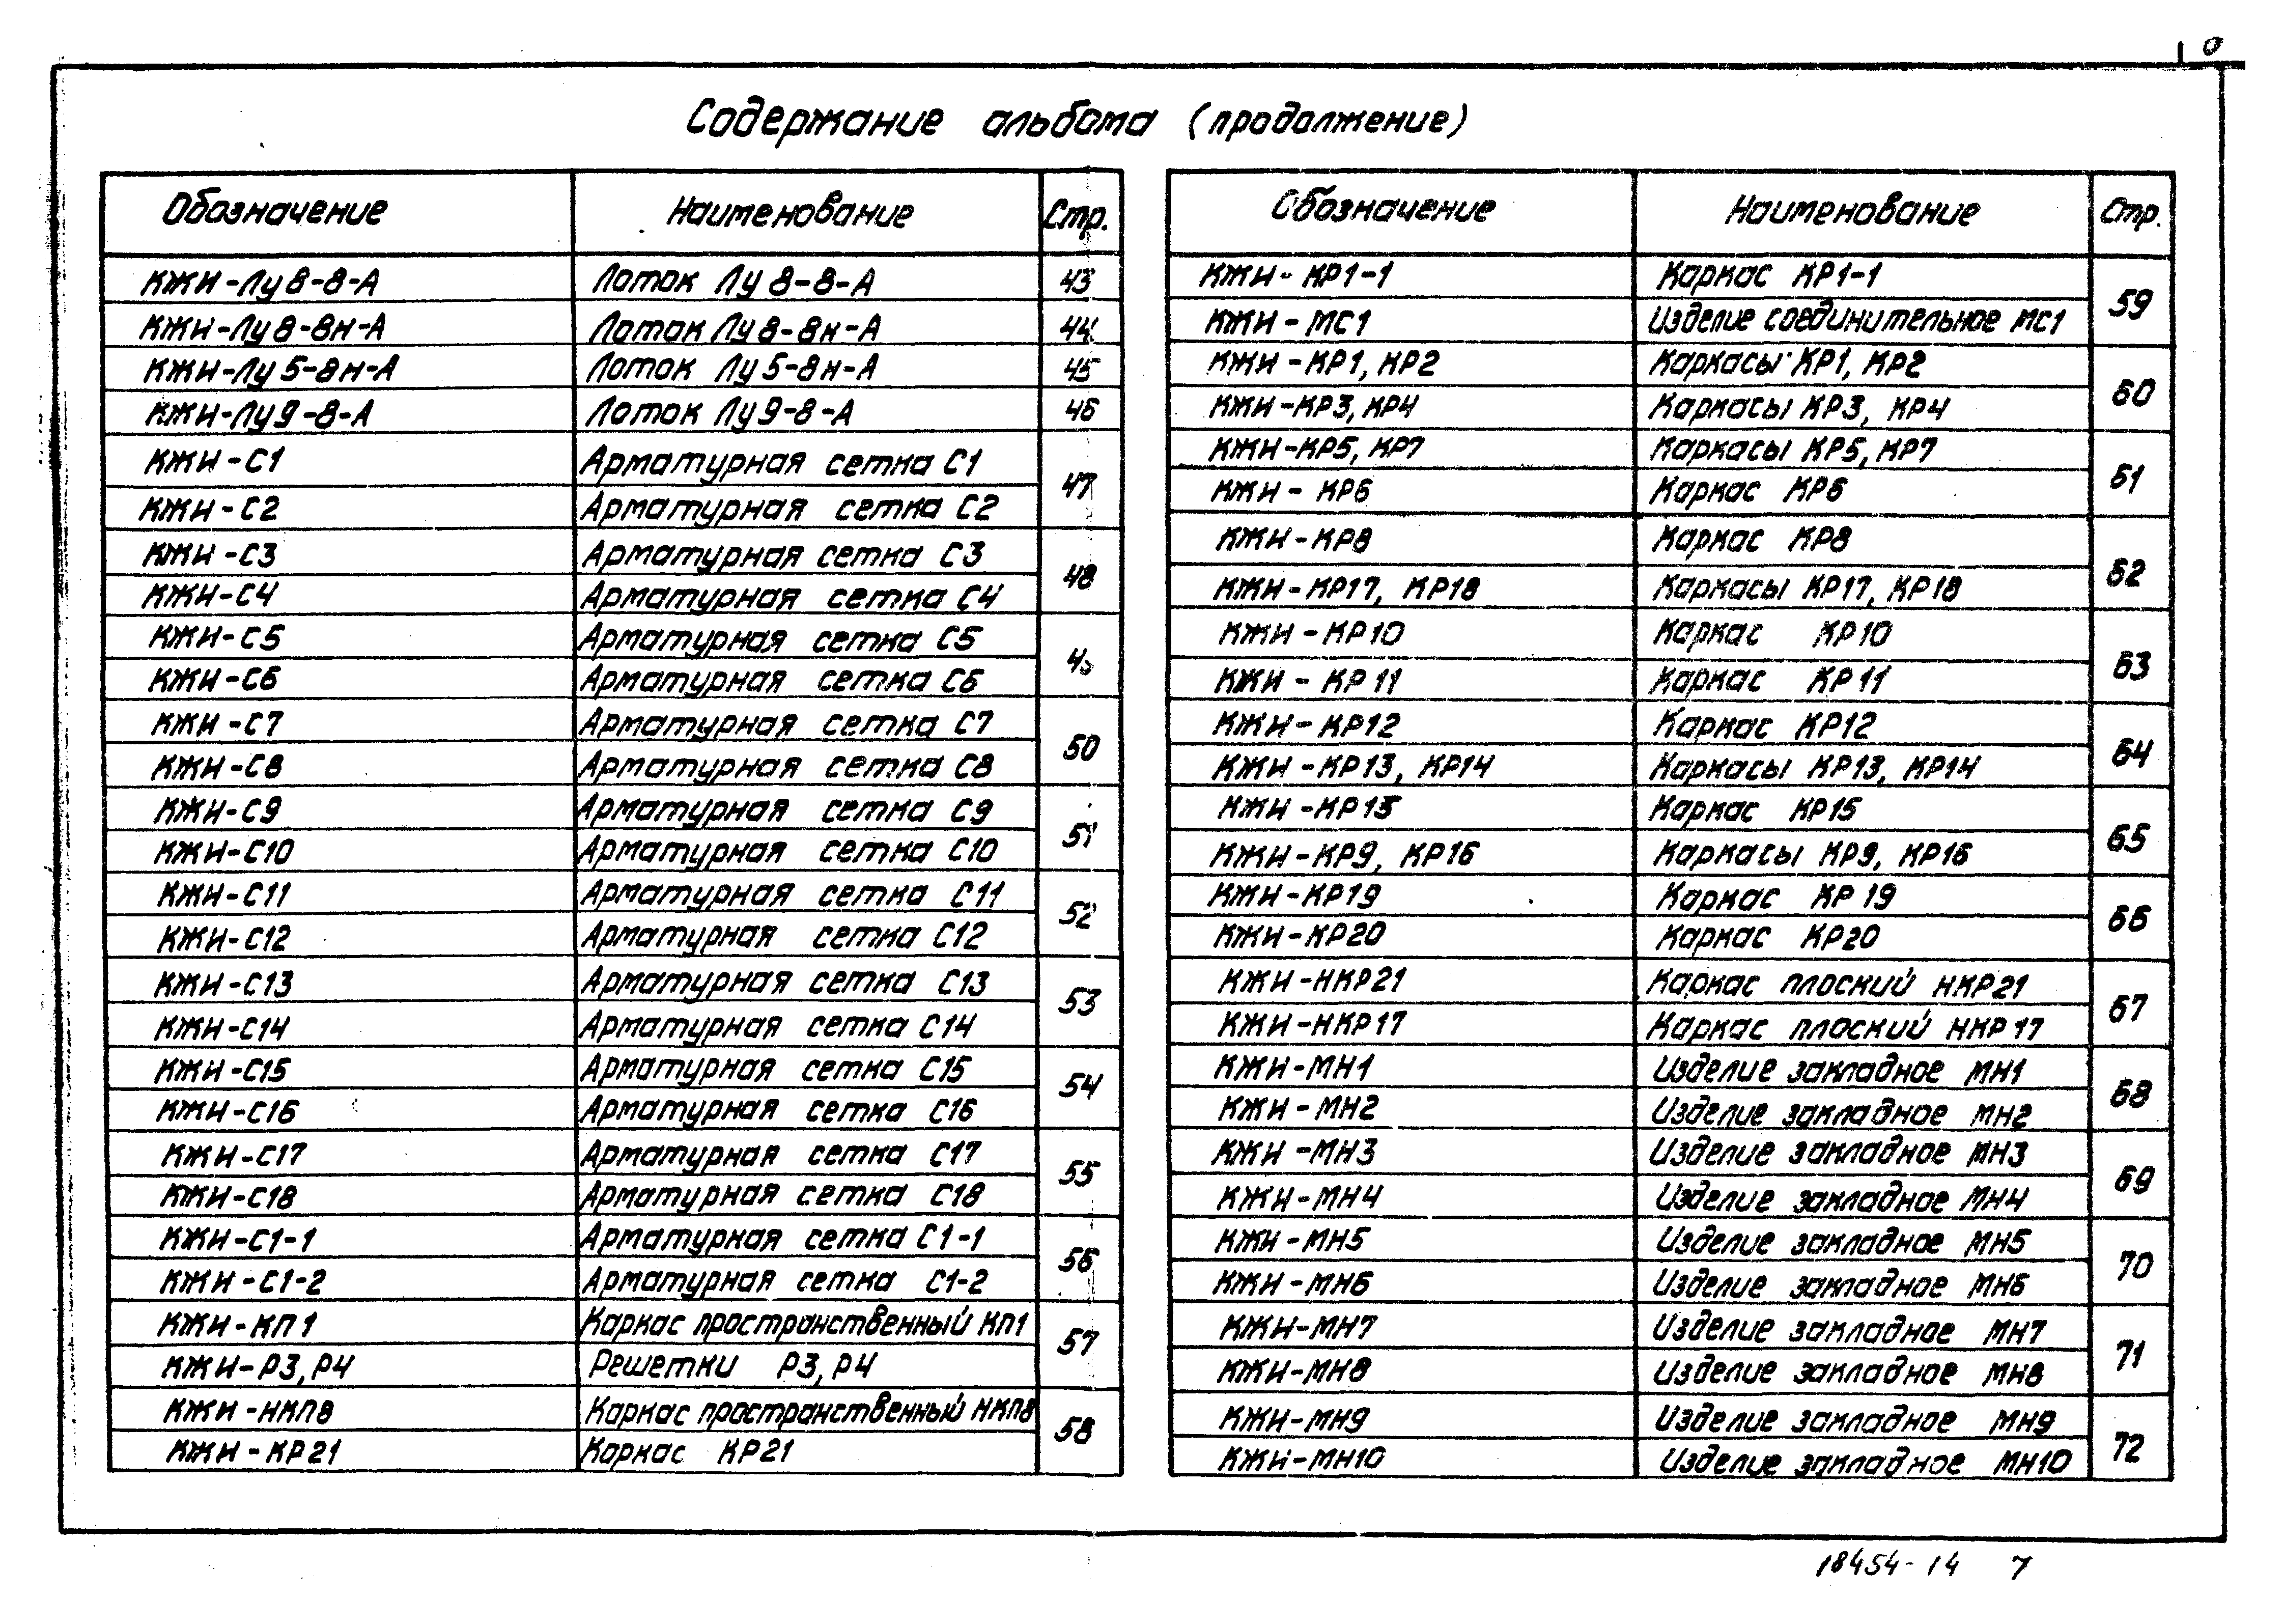 Содержание альбома (продолжение)
Обозначение Наименование Стр.
КЖИ-Лу8-8-А Лоток Лу8-8-А 43
КЖИ-Лу8-8н-А Лоток Лу8-8н-А 44
КЖИ-Лу5-8н-А Лоток Лу5-8н-А 45
КЖИ-Лу9-8-А Лоток Лу9-8-А 46
КЖИ-С1 Арматурная сетка С1 47
КЖИ-С2 Арматурная сетка С2
КЖИ-С3 Арматурная сетка С3 48
КЖИ-С4 Арматурная сетка С4
КЖИ-С5 Арматурная сетка С5
КЖИ-С6 Арматурная сетка С6
КЖИ-С7 Арматурная сетка С7 50
КЖИ-С8 Арматурная сетка С8
КЖИ-С9 Арматурная сетка С9 51
КЖИ-С10 Арматурная сетка С10
КЖИ-С11 Арматурная сетка С11 52
КЖИ-С12 Арматурная сетка С12
КЖИ-С13 Арматурная сетка С13 53
КЖИ-С14 Арматурная сетка С14
КЖИ-С15 Арматурная сетка С15 54
КЖИ-С16 Арматурная сетка С16
КЖИ-С17 Арматурная сетка С17 55
КЖИ-С18 Арматурная сетка С18
КЖИ-С1-1 Арматурная сетка С1-1 56
КЖИ-С1-2 Арматурная сетка С1-2
КЖИ-КП1 Каркас пространственный КП1 57
КЖИ-Р3,Р4 Решетки Р3,Р4
КЖИ-НКП8 Каркас пространственный НКП8 58
КЖИ-КР21 Каркас КР21
Обозначение Наименование Стр.
КЖИ-КР1-1 Каркас КР1-1 59
КЖИ-МС1 Изделие соединительное МС1
КЖИ-КР1, КР2 Каркасы КР1, КР2 60
КЖИ-КР3, КР4 Каркасы КР3, КР4
КЖИ-КР5, КР7 Каркасы КР5, КР7 61
КЖИ-КР6 Каркас КР6
КЖИ-КР8 Каркас КР8 62
КЖИ-КР17, КР18 Каркасы КР17, КР18
КЖИ-КР10 Каркас КР10 63
КЖИ-КР11 Каркас КР11
КЖИ-КР12 Каркас КР12 64
КЖИ-КР13, КР14 Каркасы КР13, КР14
КЖИ-КР15 Каркас КР15 65
КЖИ-КР9, КР16 Каркасы КР9, КР16
КЖИ-КР19 Каркас КР19 66
КЖИ-КР20 Каркас КР20
КЖИ-НКР21 Каркас плоский НКР21 67
КЖИ-НКР17 Каркас плоский НКР17
КЖИ-МН1 Изделие закладное МН1 68
КЖИ-МН2 Изделие закладное МН2
КЖИ-МН3 Изделие закладное МН3 69
КЖИ-МН4 Изделие закладное МН4
КЖИ-МН5 Изделие закладное МН5 70
КЖИ-МН6 Изделие закладное МН6
КЖИ-МН7 Изделие закладное МН7 71
КЖИ-МН8 Изделие закладное МН8
КЖИ-МН9 Изделие закладное МН9 72
КЖИ-МН10 Изделие закладное МН10
18454-14 7